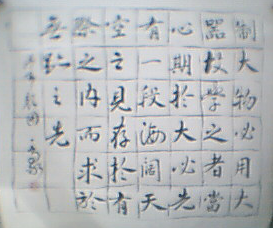 制大物必用大
器故學之者當
心期於大必先
有一段海闊天
空之見存於有
際之內而求於
無之先